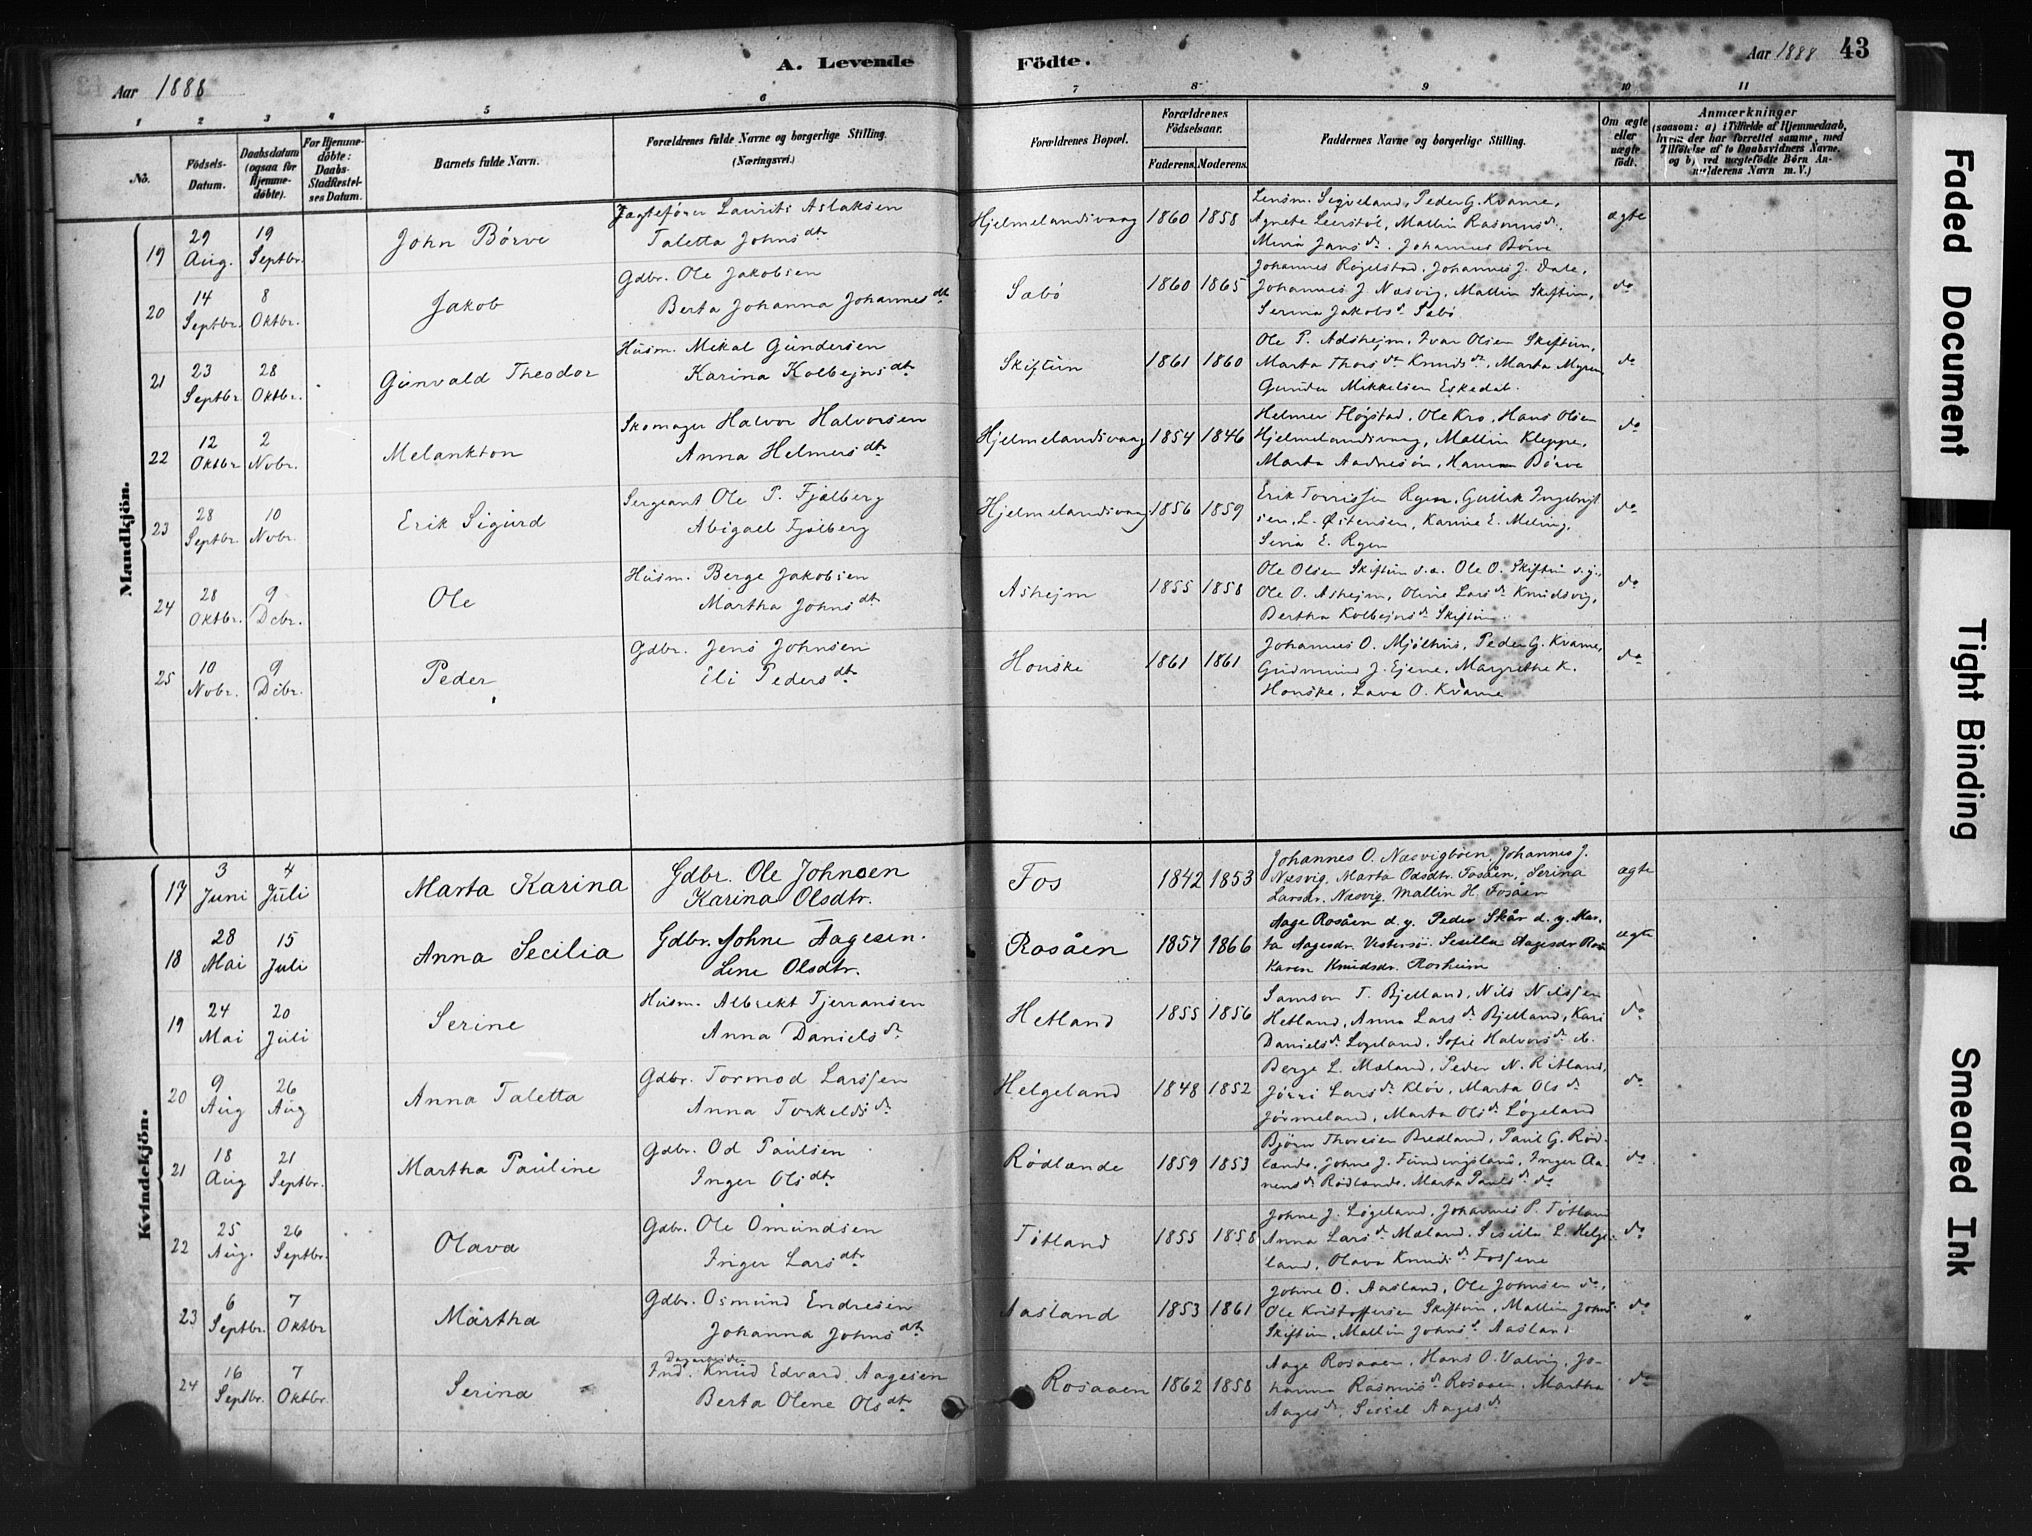 Aar 1888
A. Levende
Födte.
Aar 1888 43
1 2 3 4 5 6 7 8 9 10 11
No.
Födsels-Datum.
Daabsdatum (ogsaa for Hjemme-döbte).
For Hjemme-döbte: Daabs-Stadfæstel-ses Datum.
Barnets fulde Navn.
Forældrenes fulde Navne og borgerlige Stilling.
(Næringsvei.)
Forældrenes Bopæl.
Forældrenes Födselsaar.
Faderens. Moderens.
Faddernes Navne og borgerlige Stilling.
Om ægte eller uægte födt.
Anmærkninger
(saasom: a) i Tilfælde af Hjemmedaab,
hvem der har forrettet samme, med
Tilföielse af to Daabsvidners Navne,
og b) ved uægtefödte Börn An-
melderens Navn m. V.)
Mandkjön.
19 29 Aug. 19 Septbr. John Börve Jagtefører Laurits Aslaksen
Taletta Johnsdtr Hjelmelandsvaag 1860 1858 Lensm. Sigveland, Peder G. Kvame,
Agnete Leerstøl, Mallin Rasmusd.
Johannes Börve ægte
20 14 Septbr. 8 Oktbr. Jakob Gdbr. Ole Jakobsen
Berta Johanna Johannesdtr Sæbø 1860 1865 Johannes Røgelstad, Johannes J. Dale,
Johannes J. Næsvig, Mallin Skiftun,
Serina Jakobsd. Sæbø do
21 23 Septbr. 28 Oktbr. Gunvald Theodor Husm. Mikal Gundersen
Karina Kolbejnsdtr Skiftun 1861 1860 Ole P. Adshejm, Ivar Olsen Skiftun,
Marta Thorsdr Knudsdr, Marta Myren
Gunder Mikkelsen Eskedal. do
22 12 Oktbr 2 Novbr. Melankton Skomager Halvor Halvorsen
Anna Helmersdtr Hjelmelandsvaag 1854 1846 Helmer Høgstad, Ole Kro, Hans Olsen
Hjelmelandsvaag, Mallin Kleppe,
Marta Aadnesøn, Hanna Børve do
23 28 Septbr. 10 Novbr. Erik Sigurd Sergeant Ole P. Fjelberg
Abigael Fjelberg Hjelmelandsvaag 1856 1859 Erik Torrissen Ryen, Gullik Ingebrigt
sen, L. Østensen, Karine E. Meling,
Siria E. Ryen do
24 28 Oktbr. 9 Debr. Ole Husm. Berge Jakobsen
Martha Johnsdtr Ashejm 1855 1858 Ole Olsen Skiftun d.æ. Ole O. Skiftun d.y.,
Ole O. Ashejm, Oline Larsd. Knudsvig,
Bertha Kolbejnsd. Skiftun do
25 10 Novbr. 9 Debr. Peder Gdbr. Jens Johnsen
Eli Pedersdtr Houske 1861 1861 Johannes O. Mjølhus, Peder G. Kvame,
Gudmund J. Ejene, Margrethe K.
Houske, Lava O. Kvame do
Kvindekjön.
17 3 Juni 4 Juli Marta Karina Gdbr. Ole Johnsen
Karina Olsdtr. Fos 1842 1853 Johannes O. Næsvigbøen, Johannes J.
Næsvig, Marta Odsdtr. Fosåen, Serina
Larsdr. Næsvig, Mallin H. Fosåen ægte
18 28 Mai 15 Juli Anna Secilia Gdbr. Johne Aagesen.
Line Olsdtr. Rosåen 1857 1866 Aage Rosåen d. y. Peder Skår d. y. Mar-
ta Aagesdr. Vestersjö. Sesilla Aagesdr Ros
Karen Knudsdr. Rosheim ægte
19 24 Mai 20 Juli Serine Husm. Albrekt Tjerransen
Anna Danielsdr. Hetland 1855 1856 Samson T. Bjelland, Nils Nilssen
Hetland, Anna Larsdr. Bjelland, Kari
Danielsdr. Løgeland, Sofie Halvorsdr. do. do
20 9 Aug 26 Aug Anna Taletta Gdbr. Tormod Larssen
Anna Torkeldsdr. Helgeland 1848 1852 Berge L. Mæland, Peder N. Ritland,
Jørri Larsdr. Kløv, Marta Olsdr.
Jørmeland, Marta Olsdr. Løgeland do
21 18 Aug 21 Septbr. Martha Pauline Gdbr. Od Paulsen
Inger Olsdtr Rødlande 1859 1853 Bjørn Thoresen Bredland, Paul G. Rød-
lande, Johne J. Fundingsland, Inger Aa-
nensdr. Rødlande. Marta Paulsdr. do do
22 25 Aug. 26 Septbr. Olava Gdbr. Ole Omundsen
Inger Larsdtr. Tøtland 1855 1858 Johne J. Løgeland, Johannes P. Tøtland
Anna Larsdr. Mæland, Sisilla L. Helge-
land, Olava Knudsdr. Fossene do
23 6 Septbr. 7 Oktbr Martha Gdbr. Osmund Endresen
Johanna Johnsdtr. Aasland 1853 1861 Johne O. Aasland, Ole Johnsen do,
Ole Kristoffersen Skiftun, Mallin Johns
Skiftun, Mallin Johnsd. Aasland do
24 16 Septbr. 7 Oktbr. Serina Ind. Dagarbeider Knud Edvard Aagesen
Berta Olene Olsdtr. Rosaaen 1862 1858 Aage Rosaaen, Hans O. Valvig, Jo-
hanna Rasmusdr. Rosaaen, Martha
Aagesdr., Sissel Aagesdr do
Faded Document
Tight Binding
Smeared Ink